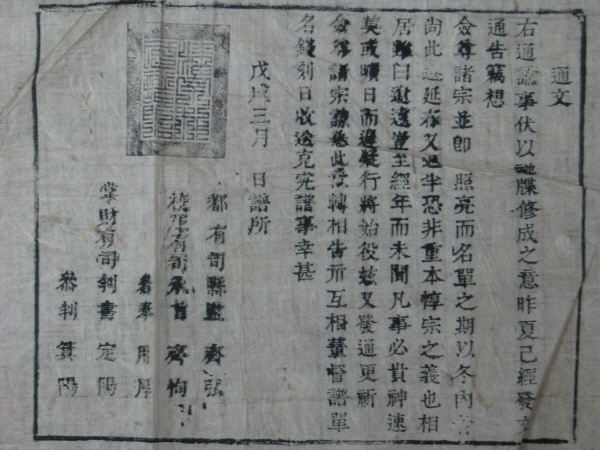 通文
右通諭事伏以譜牒修成之意昨夏已經發文
通告竊想
僉尊諸宗並卽 照亮而名單之期以冬內
尙此遲延春又過半恐非重本惇宗之義也相
居雖曰遠豈至經年而未聞凡事必貴神速
莫或曠日而遲疑行將始役玆又發通更祈
僉尊諸宗諒悉此意轉相告示互相董督譜單
名錢刻日收送克完譜事幸甚
戊戌三月 日譜所
都有司縣監 齊弘
校正有司承旨 齊恂
參奉 用厚
掌財有司判書 定陽
參判 箕陽